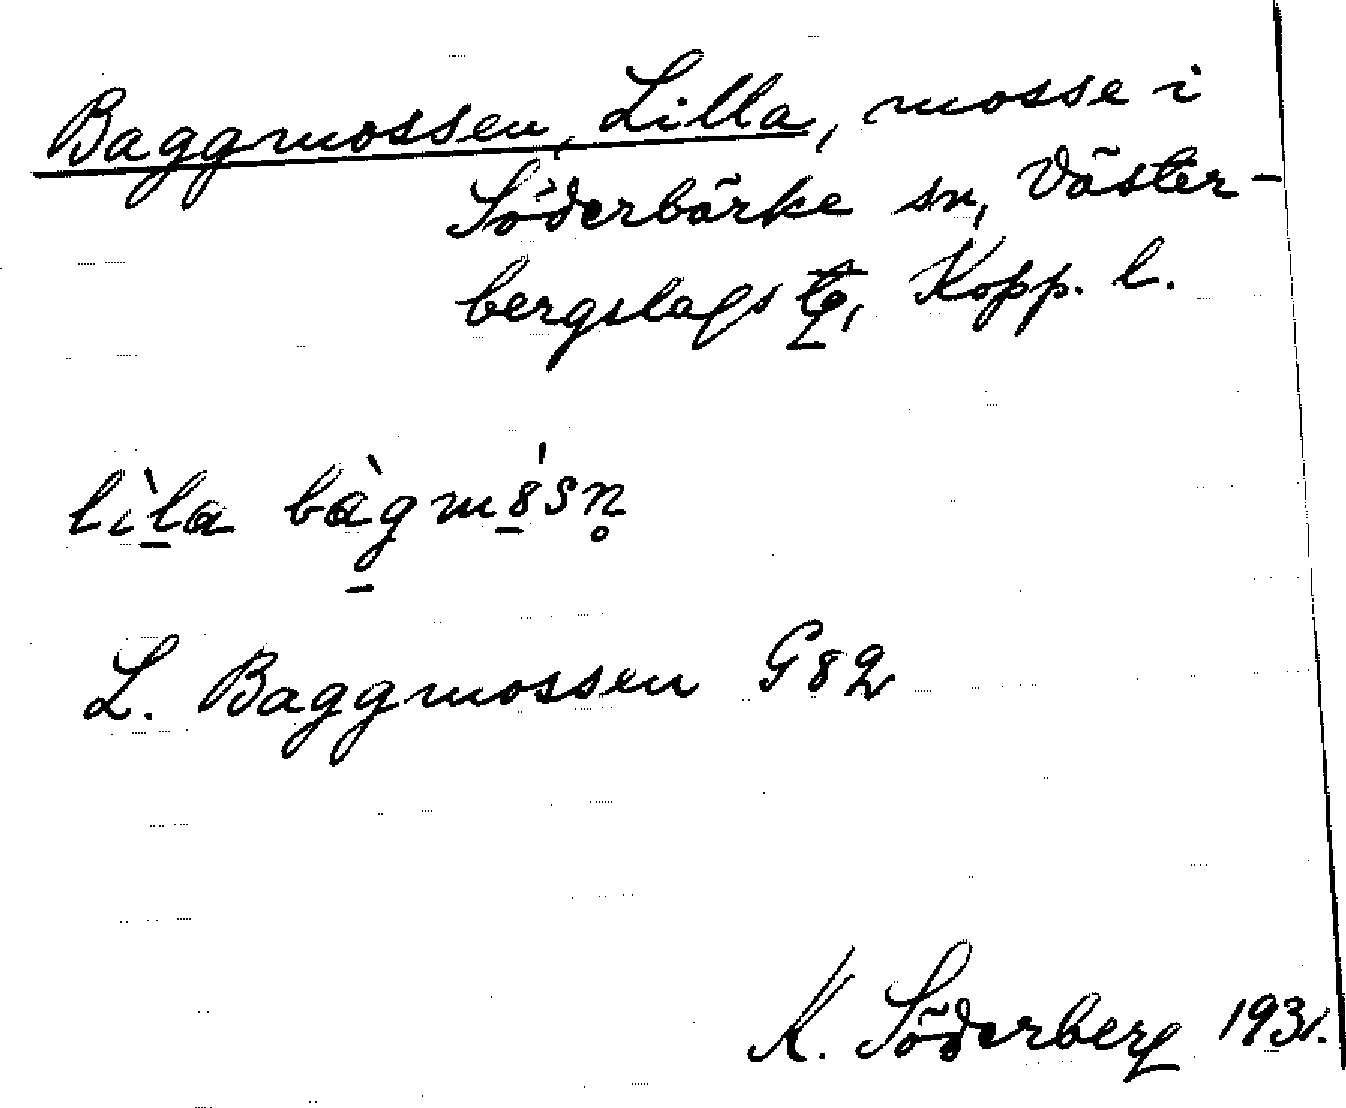 Baggmossen, Lilla, mosse i
Söderbärke sn, Väster-
bergslags tg, Kopp. l.
lìla bàgmósn̥
L. Baggmossen G82
K. Söderberg 1931.